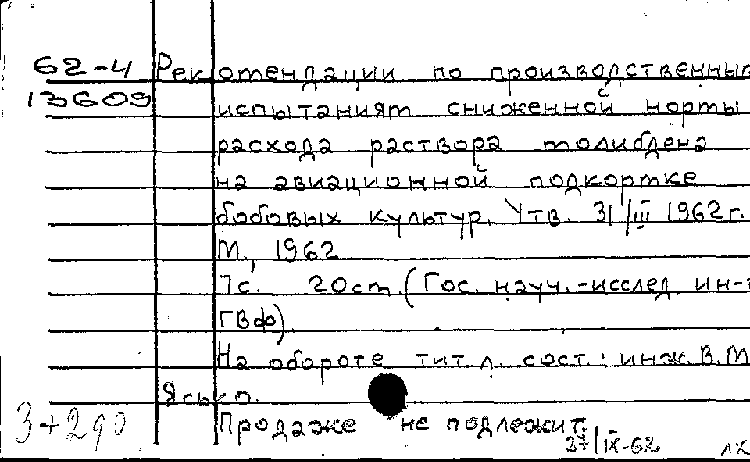 62-4 Рекомендации по производственным
13609 испытаниям сниженной нормы
расхода раствора молибдена
на авиационной подкормке
бобовых культур. Утв. 31/III 1962г.
М., 1962
7с. 20см. (Гос. науч.-исслед. ин-т
ГВФ).
На обороте тит. л. сост.: инж. В.М.
Ясько.
3+290
Продаже не подлежит.
27/IX-62